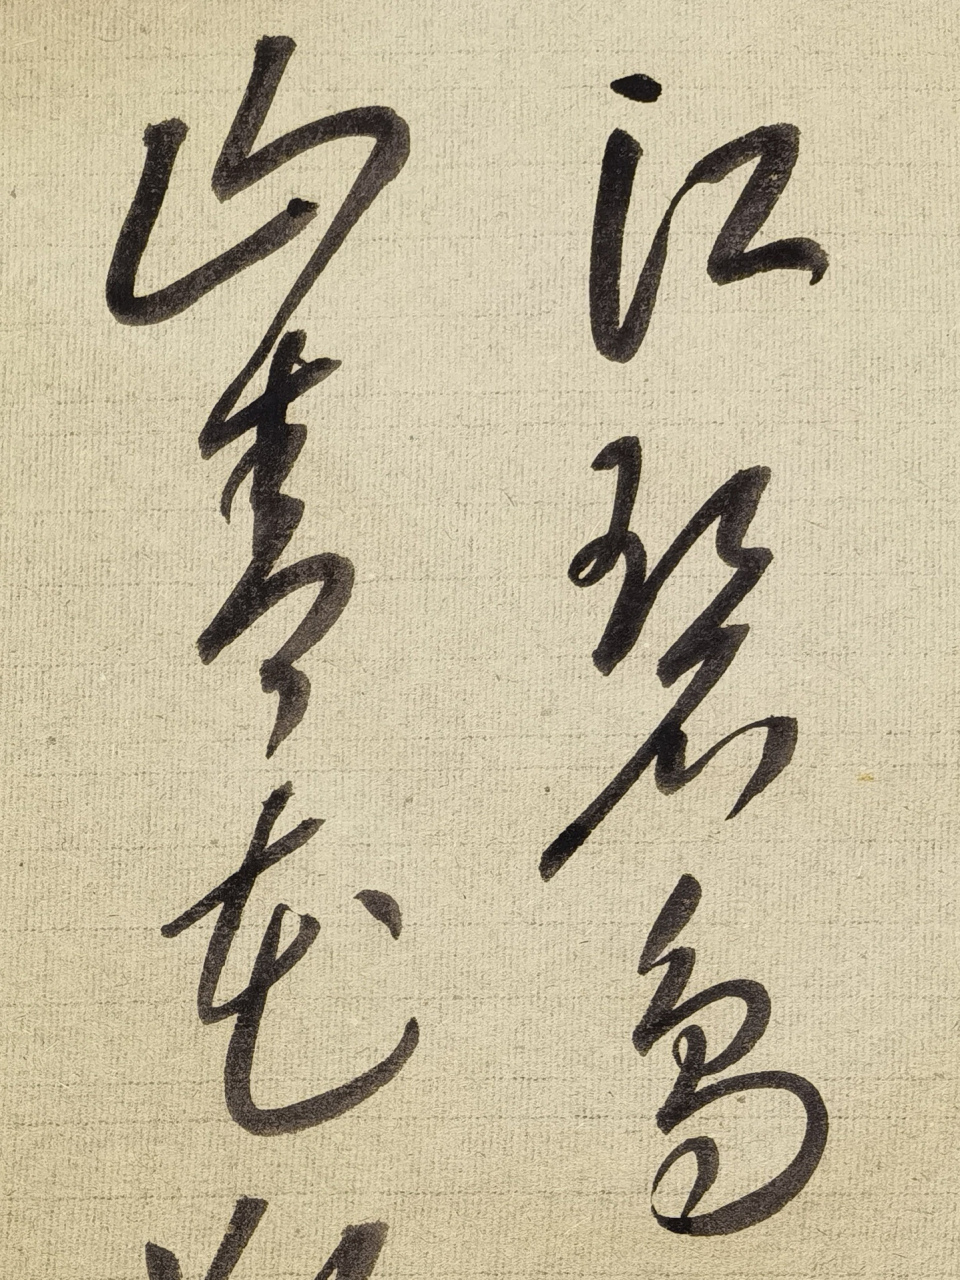 江碧鳥
山青花